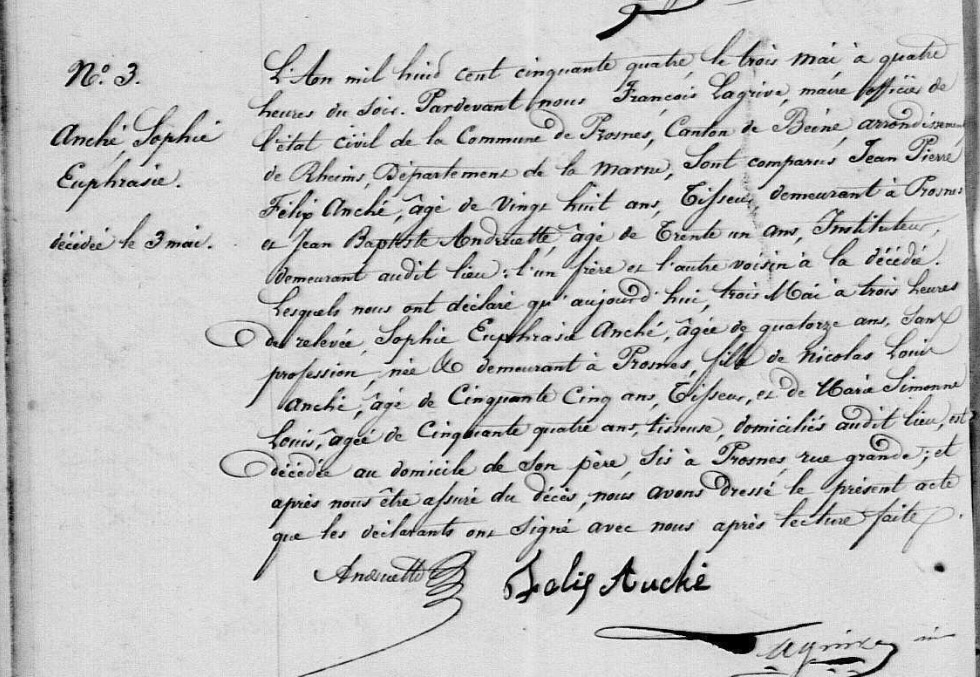 N.º 3.
Anché, Sophie
Euphrasie.
décédée le 3 mai.
L'An mil huid cent cinquante quatre, le trois mai à quatre
heures du soir. Pardevant nous François Lagrive, maire officier de
l'état civil de la Commune de Prosnes, Canton de Beine, arrondissement
de Rheims, Département de la Marne, Sont comparus Jean Pierre
Félix Anché, âgé de Vingt huit ans, Tisseur, demeurant à Prosnes
et Jean Baptiste Andruette, âgé de Trente un ans, Instituteur,
demeurant audit lieu; l'un frère et l'autre voisin à la décédée.
Lesquels nous ont déclaré qu'aujourd'hui, trois Mai à trois heures
de relevée, Sophie Euphrasie Anché, âgée de quatorze ans, Sans
profession, née & demeurant à Prosnes, fille de Nicolas Louis
Anché, âgé de Cinquante Cinq ans, Tisseur, et de Marie Simonne
Louis, âgée de Cinquante quatre ans, tisseuse, domiciliés audit lieu, est
décédée au domicile de Son père, Sis à Prosnes, rue grande; et
après nous être assuré du décès, nous avons Dressé le présent acte
que les déclarants ont Signé avec nous après lecture faite.
Andruette
Felix Auché
Lagrive